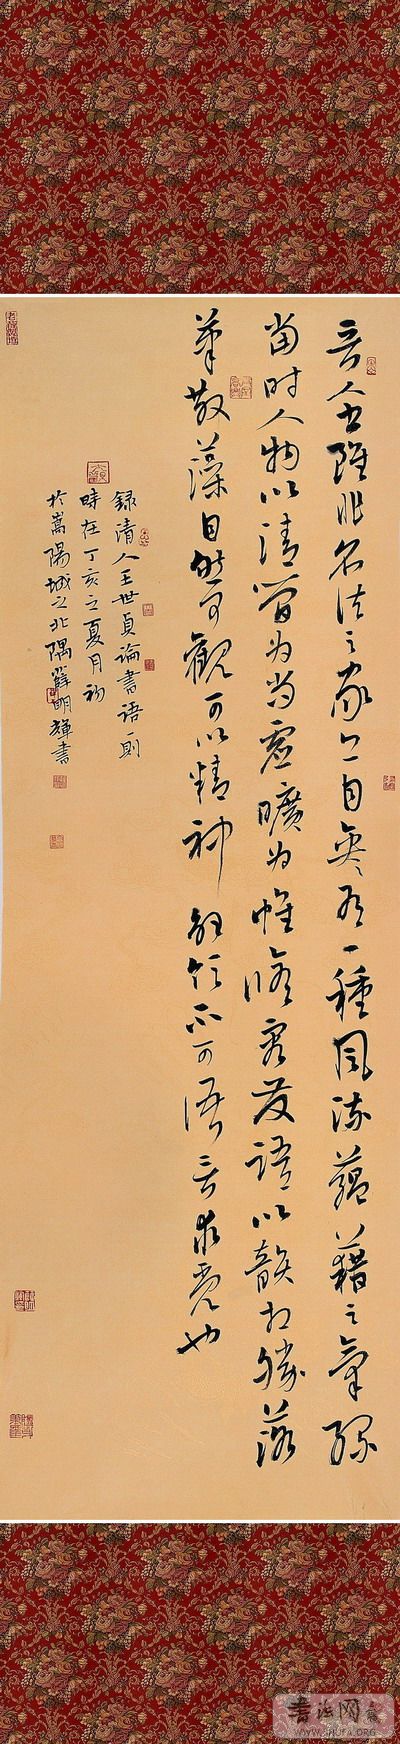 晉人书雖非名法之家亦自有一種風流蘊藉之氣缘
當时人物以清简为尚虛曠为懷修容发語以韻相勝落
華散藻自然可觀可以精神解领不可语言求覓也
録清人王世貞論書語一則
時在丁亥之夏月初
於嵩陽城之北隅薛明輝書
書法网
WWW.SHUFA.ORG